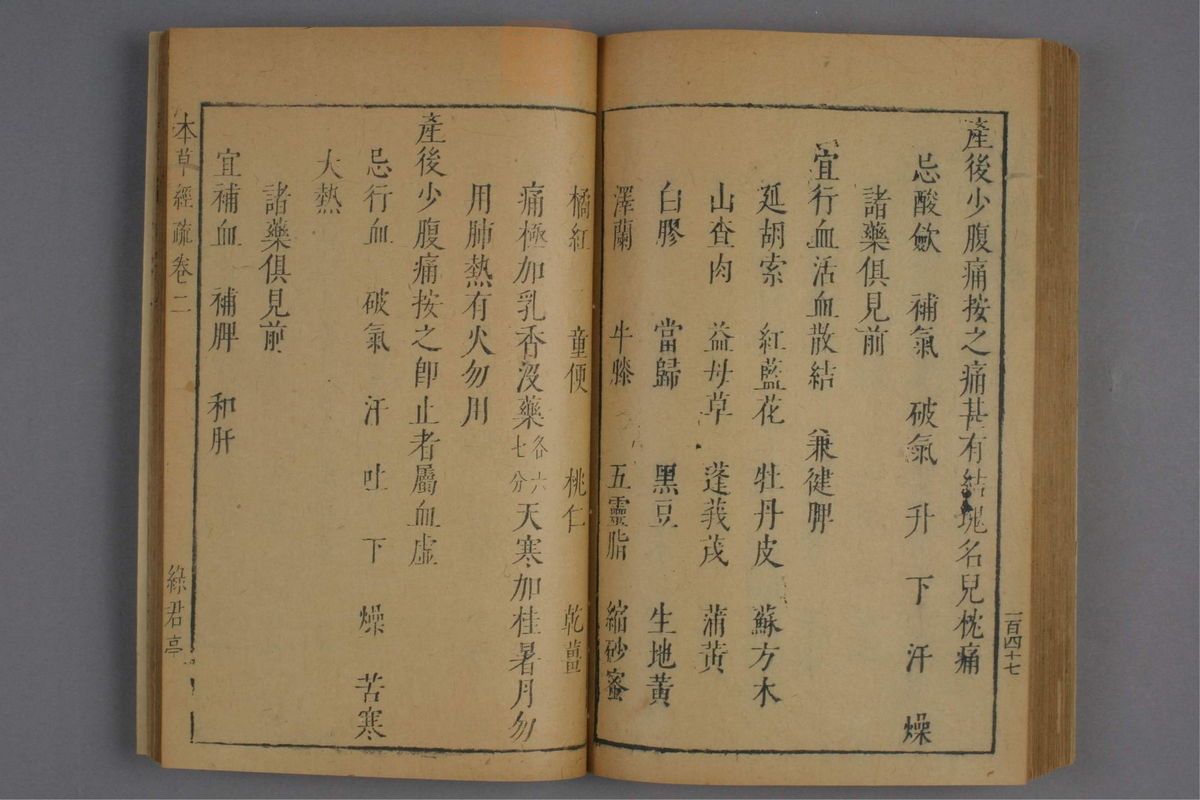 產後少腹痛按之痛甚有結塊名兒枕痛
忌酸歛　補氣　破氣　升　下　汗　燥
諸藥俱見前
宜行血活血散結　兼健脾
延胡索　紅藍花　牡丹皮　蘇方木
山查肉　益母草　蓬莪茂　蒲黃
白膠　當歸　黑豆　生地黃
澤蘭　牛膝　五靈脂　縮砂蜜
一百四十七
橘紅　童便　桃仁　乾薑
痛極加乳香沒藥各六七分天寒加桂暑月勿
用肺熱有火勿用
產後少腹痛按之卽止者屬血虛
忌行血　破氣　汗　吐　下　燥　苦寒
大熱
諸藥俱見前
宜補血　補脾　和肝
本草經疏卷二
綠君亭